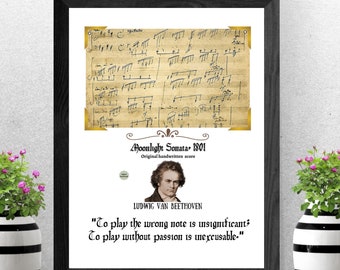 Moonlight Sonata• 1801
Original handwritten score
LUDWIG VAN BEETHOVEN
"To play the wrong note is insignificant;
To play without passion is inexcusable•"